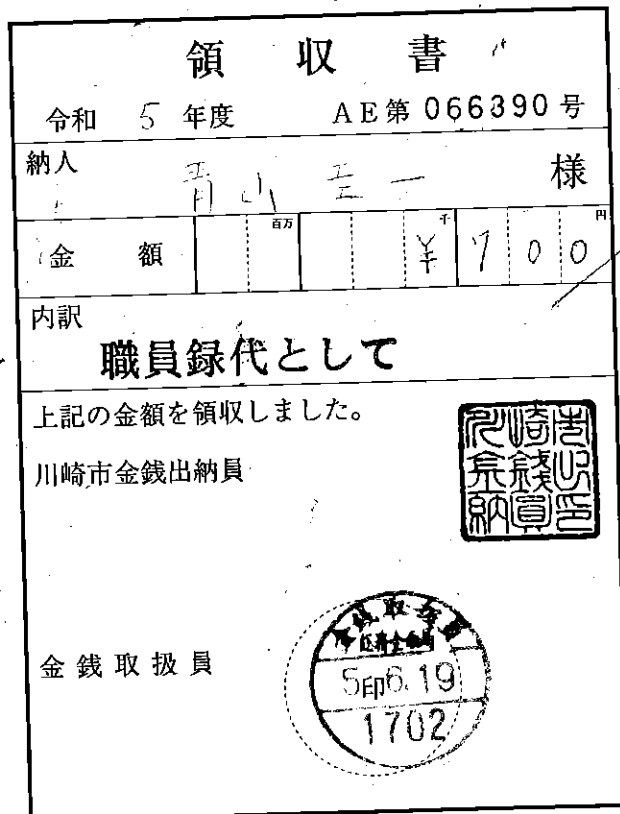 領収書
令和 5 年度 AE第 066390 号
納人 青山 圭一 様
金額 百万 千 円 ¥700
内訳
職員録代として
上記の金額を領収しました。
川崎市金銭出納員
金銭取扱員
5印6.19
1702